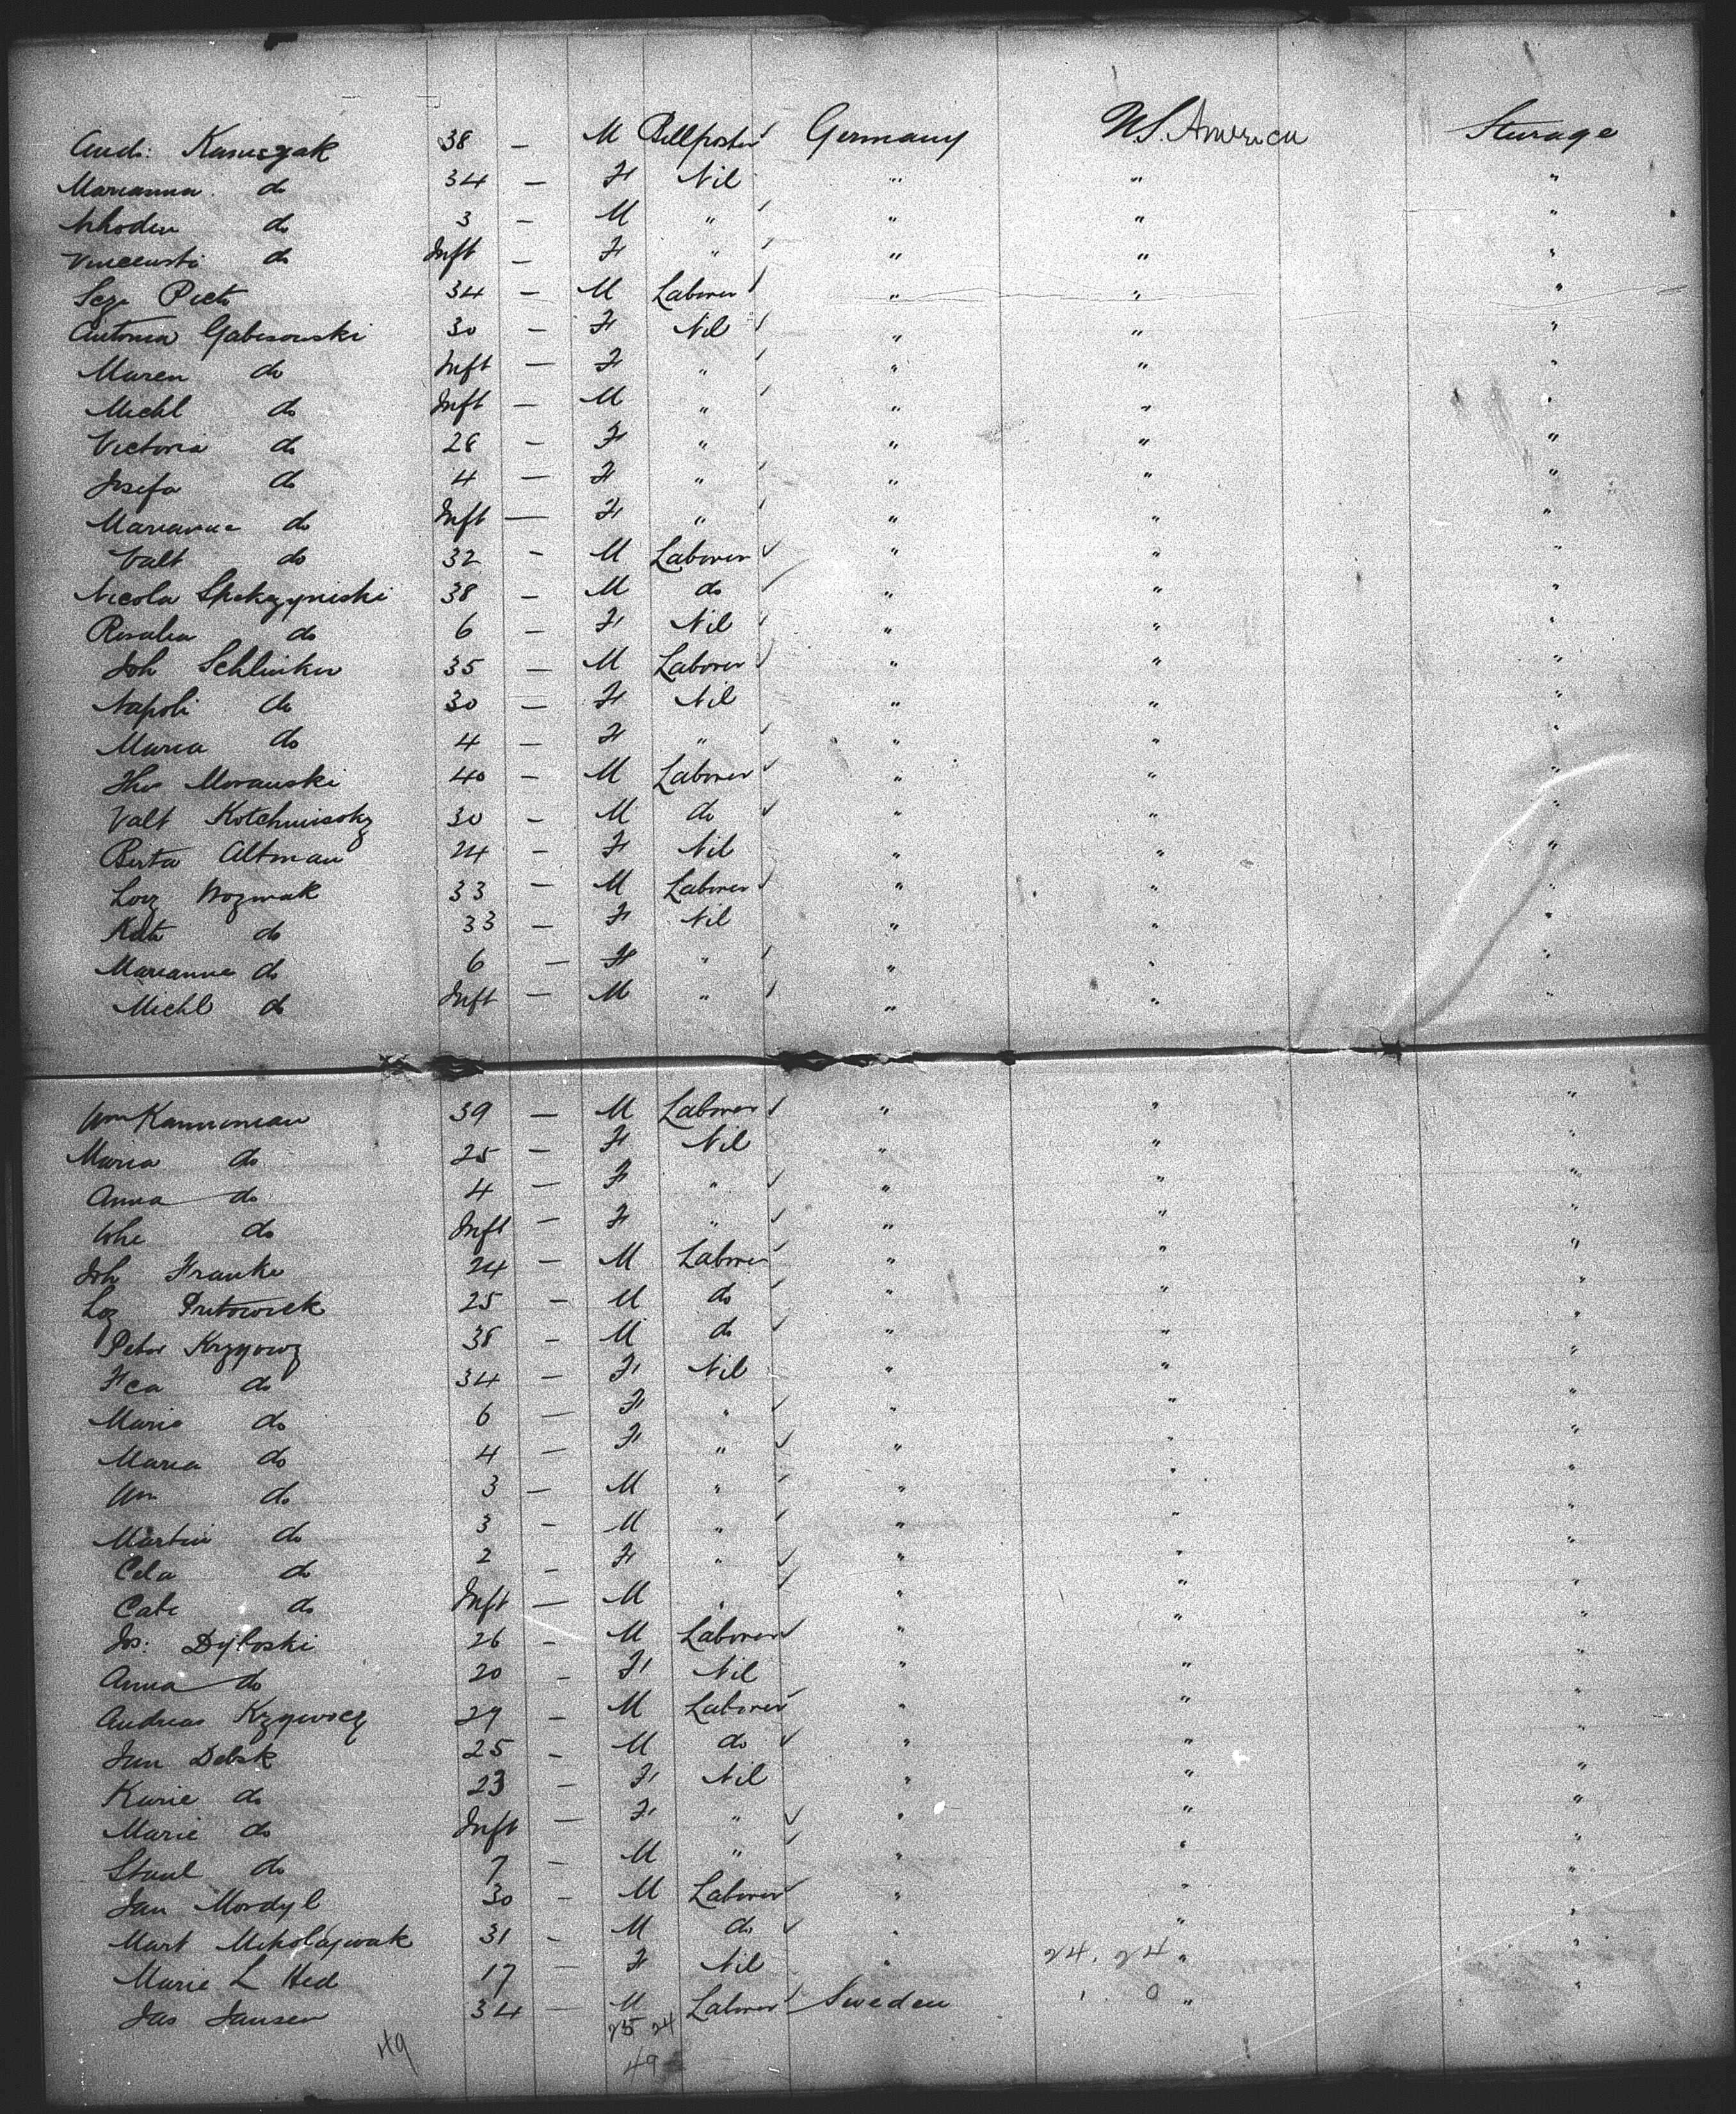 Andr: Kaniszak 38 — M Billposter Germany U.S. America Steerage
Marianna do 34 — F Nil " " "
do 3 — M " " " "
Vincenti do Inft — F " " " "
34 — M Laborer " " "
Antonia Gabisowski 30 — F Nil " " "
Maren do Inft — F " " " "
Michl do Inft — M " " " "
Victoria do 28 — F " " " "
Josefa do 4 — F " " " "
Marianne do Inft — F " " " "
Valt do 32 — M Laborer " " "
Nicola 38 — M do " " "
Rosalia do 6 — F Nil " " "
Joh Schlinker 35 — M Laborer " " "
Napoli do 30 — F Nil " " "
Maria do 4 — F " " " "
Thos Morauski 40 — M Laborer " " "
Valt Kotchnissky 30 — M do " " "
Berta Altman 24 — F Nil " " "
Lorz Wozniak 33 — M Laborer " " "
Kata do 33 — F Nil " " "
Marianne do 6 — F " " " "
Michl do Inft — M " " " "
Wm Kanneman 39 — M Laborer " " "
Maria do 25 — F Nil " " "
Anna do 4 — F " " " "
Whe do Inft — F " " " "
Joh Franke 24 — M Laborer " " "
25 — M do " " "
Peter Krzyowz 38 — M do " " "
Fca do 34 — F Nil " " "
Marie do 6 — F " " " "
Maria do 4 — F " " " "
Wm do 3 — M " " " "
Martin do 3 — M " " " "
Cela do 2 — F " " " "
Cate do Inft — M " " " "
Jos: Dyloski 26 — M Laborer " " "
Anna do 20 — F Nil " " "
Andreas 29 — M Laborer " " "
Jan Debsk 25 — M do " " "
Kurie do 23 — F Nil " " "
Marie do Inft — F " " " "
Stanl do 7 — M " " " "
Jan Mordyl 30 — M Laborer " " "
Mart Mikolajwak 31 — M do " " "
Marie L Hed 17 — F Nil " 24. 24 " "
Jas Jansen 34 — M Laborer Sweden 1 0 " "
25 24
49 49